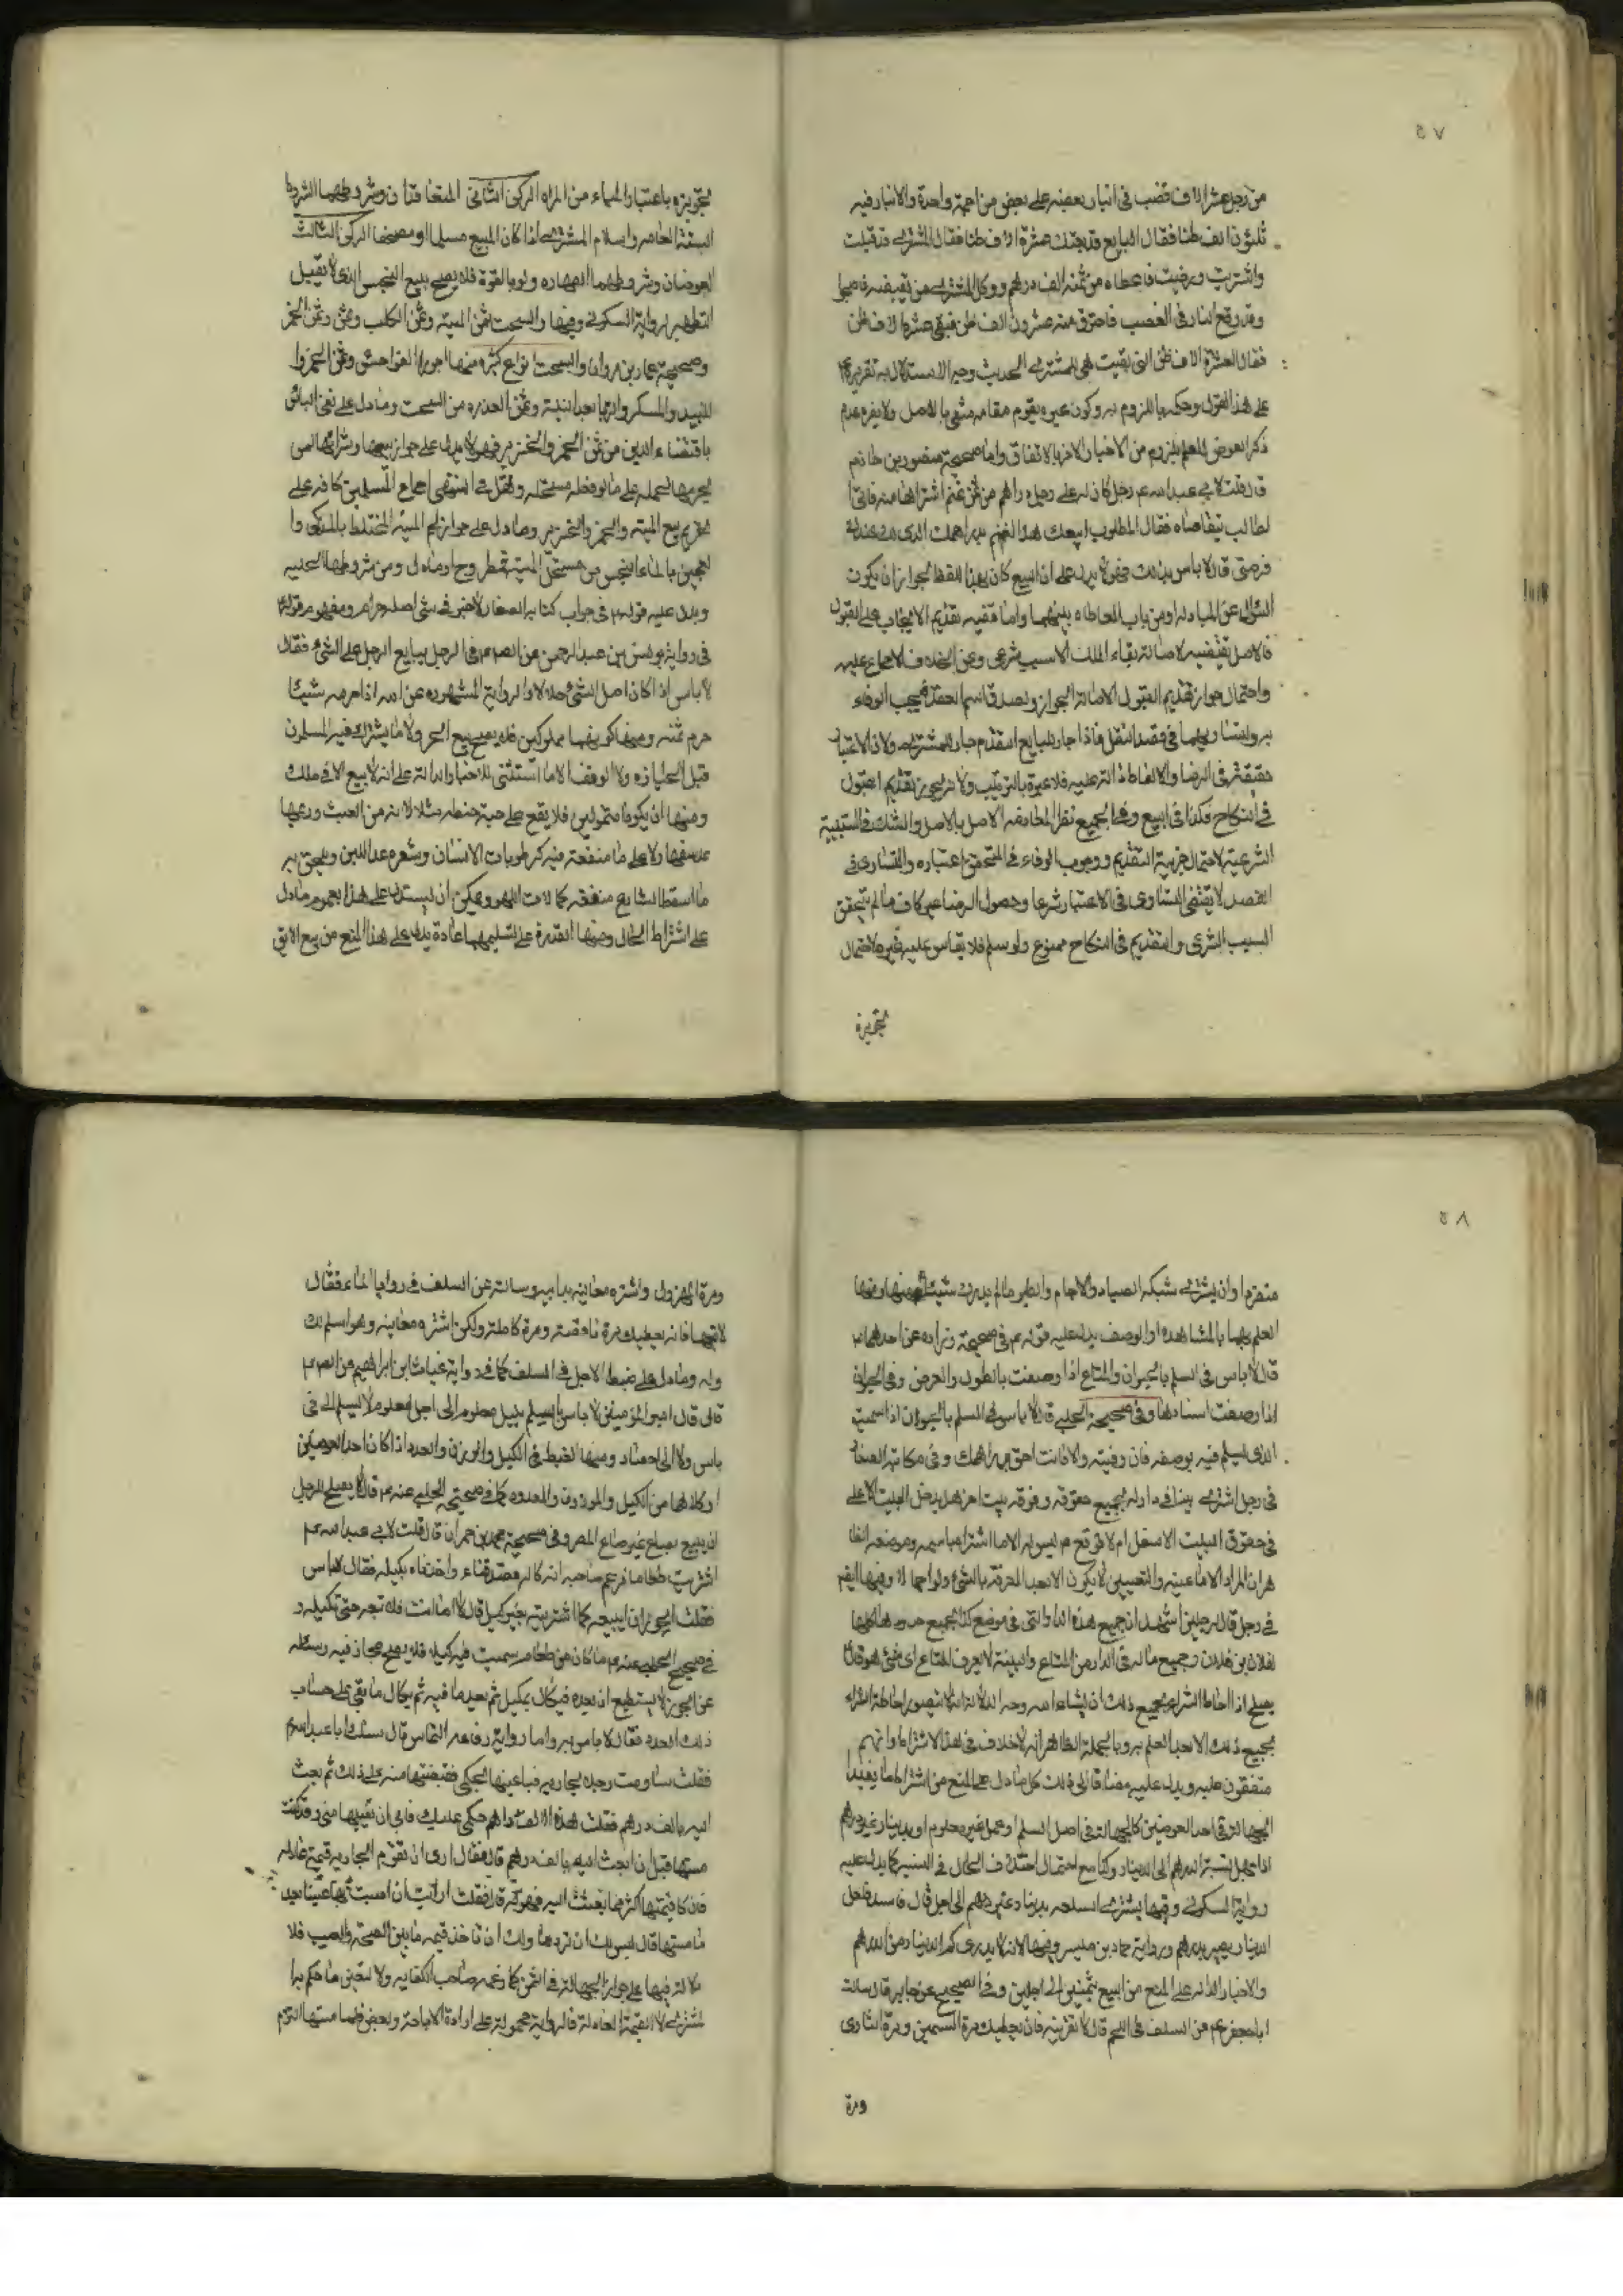 ٥٧
من رجل عشرة الاف قضب في انبار بعضه على بعض من اجمة واحدة والانبار فيه
ثلثون الف طنا فقال البايع قد بعتك عشرة الاف طنا فقال المشتري قد قبلت
واشتريت ورضيت فاعطاه من ثمنه الف درهم ووكل المشتري من يقبضه فاصبحوا
وقد وقع النار في القصب فاحترق منه عشرون الف طن فبقي عشرة الاف طن
فقال العشرة الاف طن التي بقيت هي للمشتري الحديث وجه الاستدلال به تقريره
على هذا القول وحكمه باللزوم به وكون غيره يقوم مقامه منفي بالاصل ولا يضر عدم
ذكر العوض للعلم بلزومه من الاخبار الاخر بالاتفاق واما صحيحة منصور بن حازم
قال قلت لابي عبد الله عم رجل كان له على رجل دراهم من ثمن غنم اشتراها منه فاتى ا
لطالب يتقاضاه فقال المطلوب ابيعك هذا الغنم بدراهمك الذي لك عندي
فرضي قال لا باس بذلك فهو لا يدل على ان البيع كان بهذا اللفظ لجواز ان يكون
السؤال عن المبادلة او من باب المعاطاه بينهما واما قضيه تقديم الايجاب على القبول
فالاصل يقتضيه لاصالة بقاء الملك الا بسبب شرعي وعن الخلاف الاجماع عليه
واحتمال جواز تقديم القبول لاصالة الجواز ويصدق اسم العقد فيجب الوفاء
به ولتساويهما في قصد النقل فاذا جاز للبايع التقدم جاز للمشتري ولان الاعتبار
حقيقة في الرضا والالفاظ دالة عليه فلا عبرة بالترتيب ولانه يجوز تقديم القبول
في النكاح فكذا في البيع وفي الجميع نظر المعارضة الاصل بالاصل والشك في السببية
الشرعية لاحتمال جزئية التقديم ووجوب الوفاء في المتحقق اعتباره والتساوي في
القصد لا يقتضي التساوي في الاعتبار شرعا وحصول الرضا غير كاف ما لم يتحقق
السبب الشرعي والتقديم في النكاح ممنوع ولو سلم فلا يقاس عليه غيره لاحتمال
تجويزه
تجويزه باعتبار الحياء من المراه الركن الثاني المتعاقدان وشروطهما الشروط
الستة الحاصر واسلام المشتري اذا كان المبيع مسلما او مصحفا الركن الثالث
العوضان وشروطهما الطهاره ولو بالقوة فلا يصح بيع النجس الذي لا يقبل
التطهير لرواية السكوني وفيها والسحت ثمن الميتة وثمن الكلب وثمن الخمر
وصحيحة عمار بن مروان والسحت انواع كثيره منها اجور الفواحش وثمن الخمر وا
لنبيذ والمسكر والربا بعد البينة وثمن العذره من السحت وما دل على نفي الباس
باقتضاء الدين من ثمن الخمر والخنزير فهو لا يدل على جواز بيعها وشرائها من
يحرمها لحمله على ما لو فعله مستحله ونقل في المنتهى اجماع المسلمين كافه على
تحريم بيع الميته والخمر والخنزير وما دل على جواز لحم الميته المختلط بالمذكى وا
لعجين بالماء النجس من مستحل الميته فمطروح او ماول ومن شروطهما الحلية
ويدل عليه قوله عم في جواب كتابه الصفار لا خير في شي اصله حرام ومفهوم قوله عم
في رواية يونس بن عبد الرحمن عن الصم عم في الرجل يبايع الرجل على الشئ فقال
لا باس اذا كان اصل الشئ حلالا والرواية المشهوره عن الله اذا حرم شيئا
حرم ثمنه ومنها كونهما مملوكين فلا يصح بيع الحر ولا ما يشترك فيه المسلمون
قبل الحيازه ولا الوقف الا ما استثني للاخبار الدالة على انه لا بيع الا في ملك
ومنها ان يكونا متمولين فلا يقع على حبة حنطه مثلا لانه من العبث وربما
عد سفها ولا على ما منفعة فيه كرطوبات الانسان وشعره عدا اللبن ويلحق به
ما اسقط الشارع منفعته كالات اللهو ويمكن ان يستدل على هذا بعموم ما دل
على اشتراط الحلال ومنها القدرة على التسليم بها عادة يدل على هذا المنع من بيع الابق
٥٨
منفردا وان يشتري شبكة الصياد والاجام والطير ما لم يدرك شيئا منها ومنها
العلم بهما بالمشاهده او الوصف يدل عليه قوله عم في صحيحة زراره عن احدهما عم
قال لا باس في السلم بالحيوان والمتاع اذا وصفت بالطول والعرض وفي الحيوان
اذا وصفت اسنانها وفي صحيحة الحلبي قال لا باس في السلم بالحيوان اذا سميت
الذي يسلم فيه بوصفه فان وفيته والا فانت احق بدراهمك وفي مكاتبة الصفار
في رجل اشترى بيتا في دار له بجميع حقوقه وفوقه بيت اخر هل يدخل البيت الاعلى
في حقوق البيت الاسفل ام لا فوقع عم ليس له الا ما اشتراه باسمه وموضعه الظا
هر ان المراد الا ما عينه والتعيين لا يكون الا بعد المعرفة بالشئ ولو اجمالا وفيها ايضا
في رجل قال لرجلين اشهد ان جميع هذه الدار التي في موضع كذا بجميع حدودها كلها
لفلان بن فلان وجميع ماله في الدار من المتاع والبينة لا يعرف المتاع اي شئ هو قال
يصلح اذا احاط الشراء بجميع ذلك ان شاء الله وجه الدلالة انه لا يتصور احاطة الشراء
بجميع ذلك الا بعد العلم به وبالجملة الظاهر انه لا خلاف في هذا الاشتراط وانهم
متفقون عليه ويدل عليه مضافا الى ذلك كل ما دل على المنع من اشتراط ما يفيد ا
لجهالة في احد العوضين كالجهالة في اصل السلم او عمل غير معلوم او بدينار غير درهم
اذا جهل نسبة الدرهم الى الدينار وكذا مع احتمال اختلاف الحال في النسبة كما يدل عليه
رواية السكوني وفيها يشتري السلعه بدينار غير درهم الى اجل قال فاسد فلعل
الدينار يصير بدرهم ورواية حماد بن ميسر وفيها لانه لا يدري كم الدينار من الدرهم
والاخبار الدالة على المنع من البيع بثمنين الى اجلين وفي الصحيح عن جابر قال سالت
ابا جعفر عم عن السلف في اللحم قال لا تقربنه فان يعطيك مرة السمين ومرة التاوي
ومرة
ومرة المهزول واشتره معاينة يدا بيد وسالته عن السلف في روايا الماء فقال
لا تبعها فانه يعطيك مرة ناقصة ومرة كاملة ولكن اشتره معاينة وهو اسلم لك
وله وما دل على ضبط الاجل في السلف كما في رواية غياث بن ابراهيم عن الصم عم
قال قال امير المؤمنين لا باس بالسلم بكيل معلوم الى اجل معلوم لا يسلم الى في
باس ولا الى حصاد ومنها الضبط في الكيل والوزن والعدد اذا كان احد العوضين
او كلاهما من المكيل والموزون والمعدود كما في صحيحة الحلبي عنه عم قال لا يصلح للرجل
ان يبيع بصاع غير صاع المصر وفي صحيحة محمد بن حمران قال قلت لابي عبد الله عم
اشتريت طعاما فزعم صاحبه انه كاله فصدقناه واخذناه بكيله فقال لا باس
فقلت ايجوز ان ابيعه كما اشتريته بغير كيل قال لا اما انت فلا تبعه حتى تكيله و
في صحيح الحلبي عنه عم ما كان من طعام سميت فيه كيلا فلا يصلح مجازفة وسئله
عن الجوز لا يستطيع ان يعده فيكال بمكيل ثم يعد ما فيه ثم يكال ما بقي على حساب
ذلك العدد فقال لا باس به واما رواية رفاعه النخاس قال سئلت ابا عبد الله عم
فقلت ساومت رجلا بجاريه فباعنيها بحكمي فقبضتها منه على ذلك ثم بعثت
اليه بالف درهم فقلت هذه الالف درهم حكمي عليك فابى ان يقبلها مني وقد كنت
مسستها قبل ان ابعث اليه بالف درهم قال فقال ارى ان تقوم الجاريه قيمة عادلة
فان كان قيمتها اكثر مما بعثت اليه فهو كره قال فقلت ارايت ان اصبت بها عيبا بعد
ما مسستها قال ليس لك ان تردها ولك ان تاخذ قيمه ما بين الصحة والعيب فلا
دلالة فيها على جواز الجهالة في الثمن كما زعمه صاحب الكفايه ولا لتعين ما حكم به ا
لمشتري لا القيمة العادلة فالرواية محمولة على ارادة الاباحة وبعض فلما مسها التزم